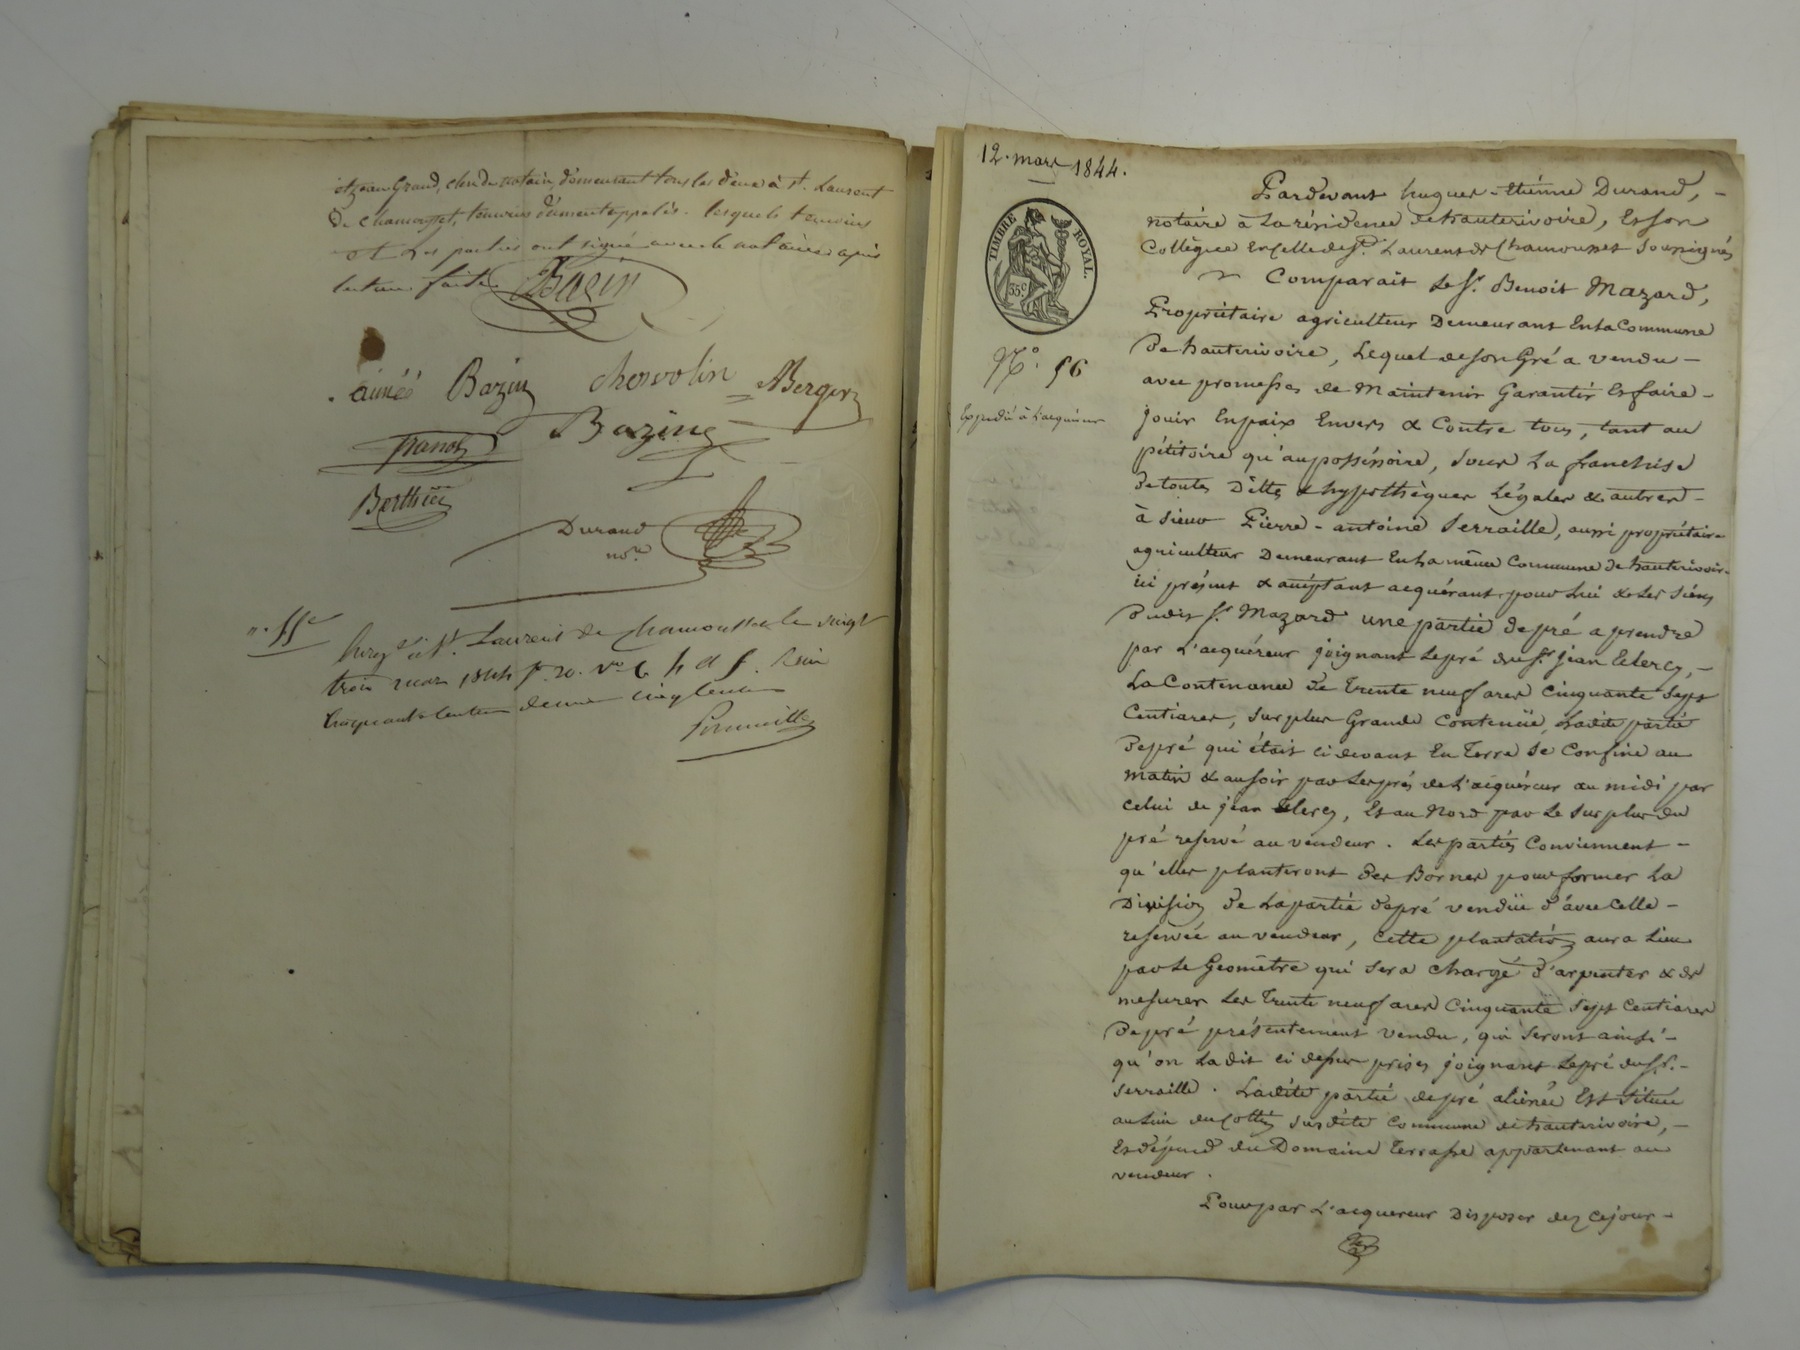 et jean Grand, clerc de notaire, demeurant tous les deux à St. Laurent
de chamousset, temoins dûment appelés. lesquels temoins
et Les parties ont signé avec le notaire après
lecture faite.
Bazin
aimée Bazin chervolin Berger
Bazin
Berthier
Durand
nore
n. 55e
Enreg.é à St. Laurent de chamousset le vingt
trois mars 1844 fo. 20. vo. C. 4 et f. Reçu
cinquante centimes
12. mars 1844.
TIMBRE ROYAL.
35c
No. 56
Expédié à l'acquéreur
Pardevant hugues-etiénne Durand, -
notaire à La résidence de hauterivoire, Et son
Collègue En celle de St. Laurent de Chamousset soussignés
Comparait Le Sr. Benoit Mazard,
Propriétaire agriculteur Demeurant En La Commune
De hauterivoire, Lequel de son Gré a vendu -
avec promesses de Maintenir Garantir Et faire -
jouir En paix Envers & Contre tous, tant au
pétitoire qu'au posséssoire, sous La franchise
de toutes Dêttes & hypothèques Légales & autres -
à Sieur Pierre - antoine Serraille, aussi propriétaire
agriculteur Demeurant En La même Commune de hauterivoire
ici présent & acceptant acquérant pour Lui & Les Siens
Dudit Sr. Mazard une partie de pré a prendre
par L'acquéreur joignant Le pré du Sr. jean Clercy, -
La Contenance de Trente neuf ares Cinquante Sept
Centiares, sur plus Grande Contenüe, Ladite partie
De pré qui était ci devant En Terre Se Confine au
matin & au soir par Les prés de L'acquéreur au midi par
Celui de jean Clercy, Et au Nord par Le surplus du
pré reservé au vendeur. Les parties Conviennent -
qu'elles planteront des Bornes pour former La
Division de La partie de pré vendüe d'avec Celle -
reservée au vendeur, Cette plantation aura Lieu
par Le Geomêtre qui sera chargé d'arpenter & de
mesurer Les Trente neuf ares Cinquante Sept Centiares
De pré présentement vendu, qui seront ainsi -
qu'on La dit ci dessus prises joignant Le pré du Sr. -
Serraille. Ladite partie de pré aliénée Est située
au Lieu du Susdite Commune de hauterivoire, -
Et dépend du Domaine Terrasse appartenant au
vendeur.
Pour par L'acquereur Disposer dez Cejour -